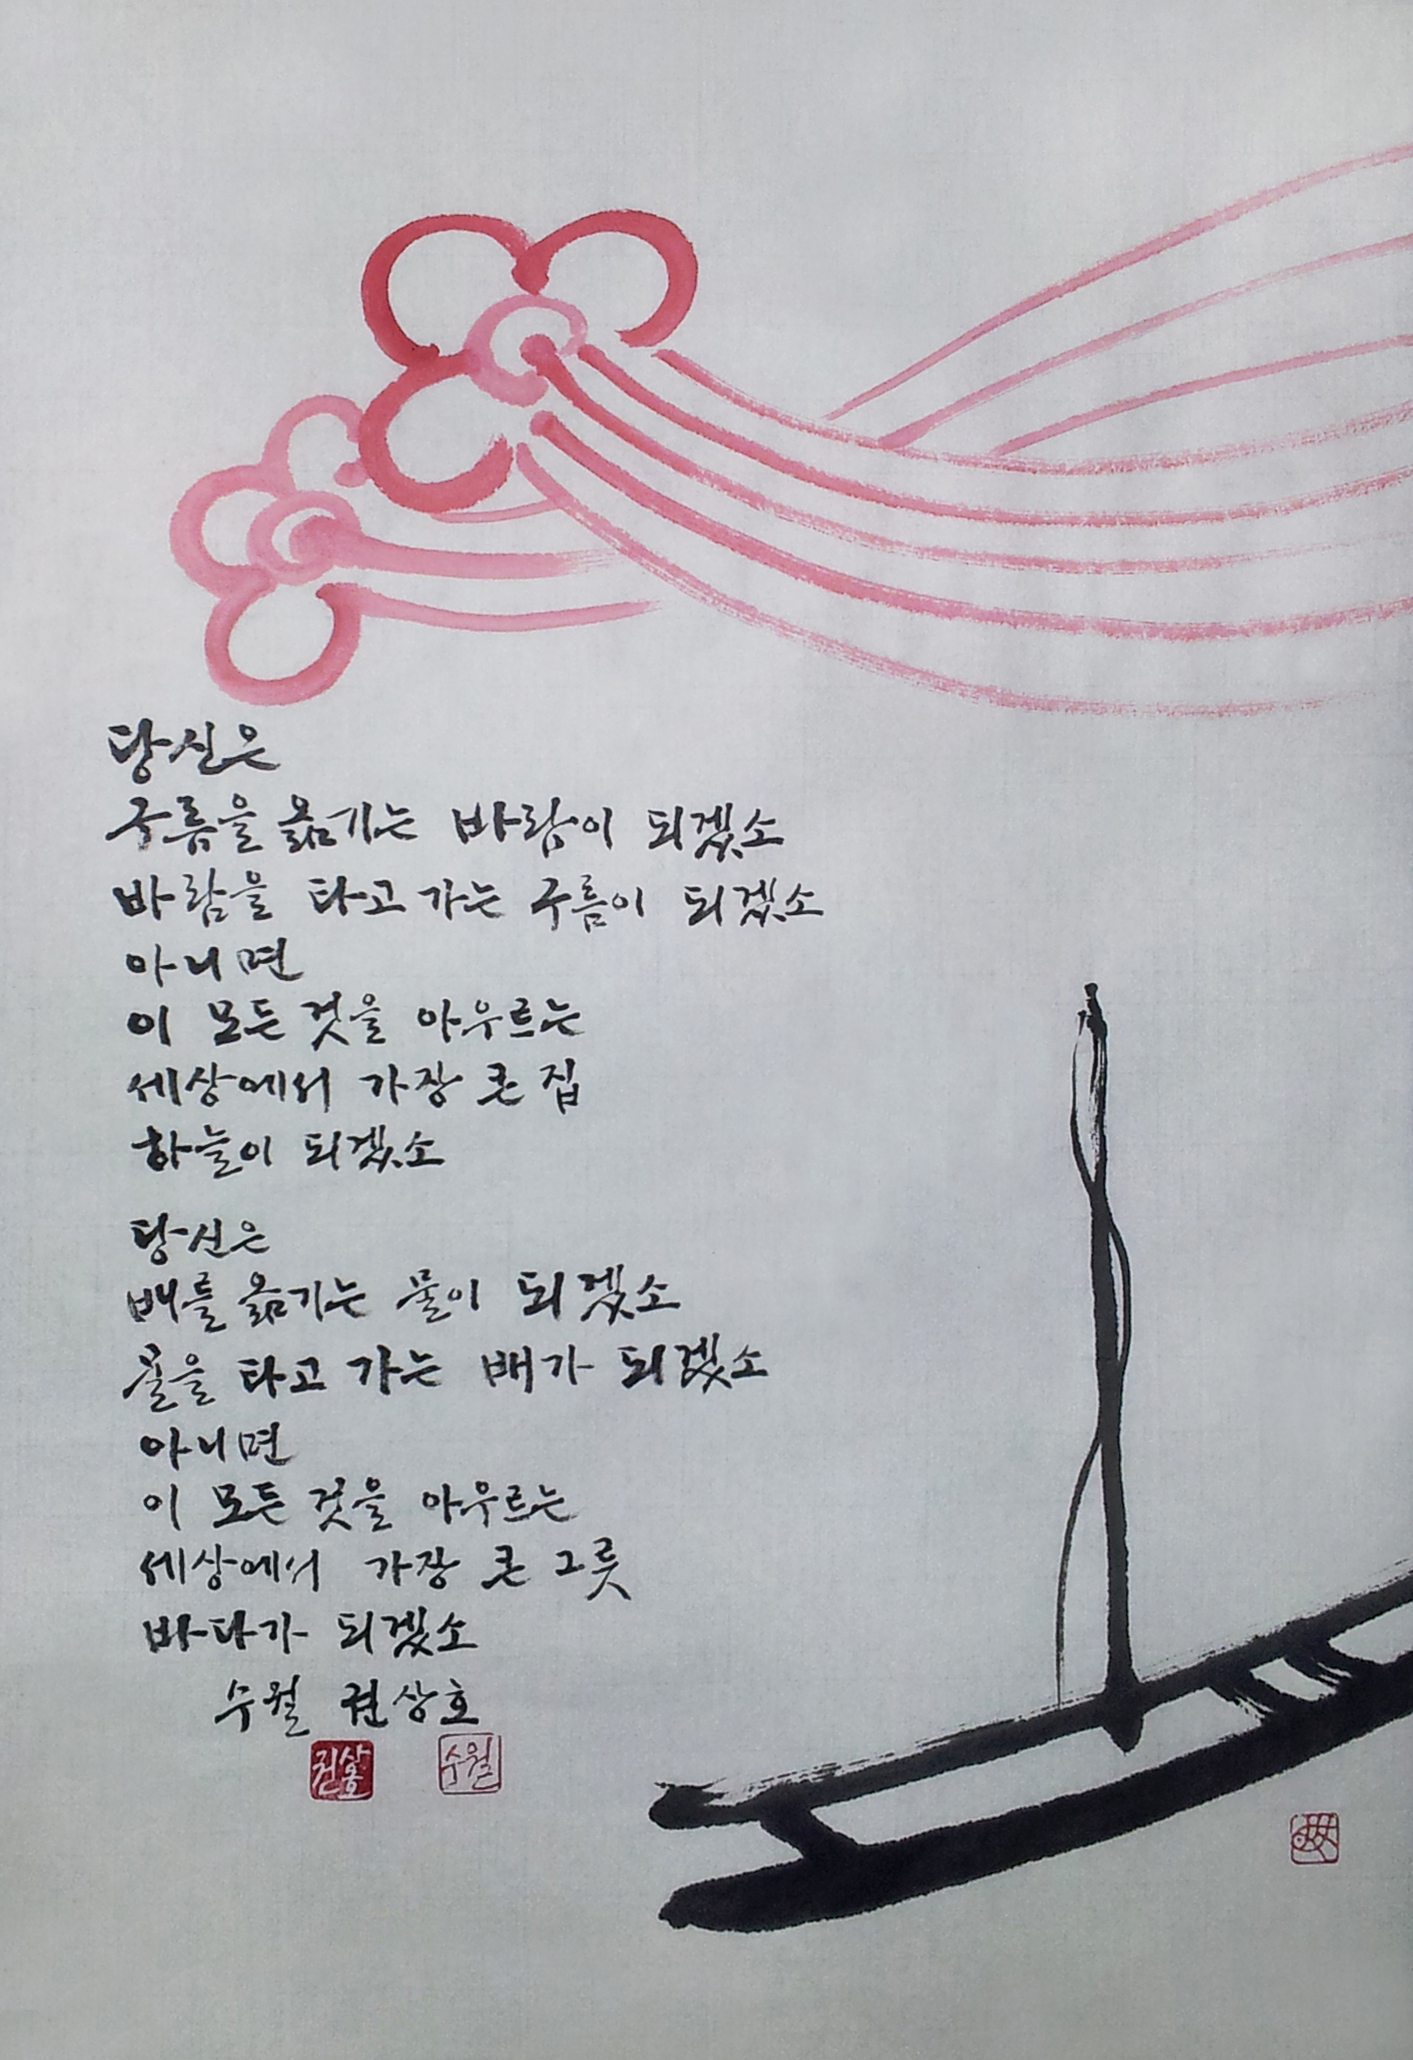 당신은
구름을 옮기는 바람이 되겠소
바람을 타고 가는 구름이 되겠소
아니면
이 모든 것을 아우르는
세상에서 가장 큰 집
하늘이 되겠소
당신은
배를 옮기는 물이 되겠소
물을 타고 가는 배가 되겠소
아니면
이 모든 것을 아우르는
세상에서 가장 큰 그릇
바다가 되겠소
수월 권상호
권상호 수월